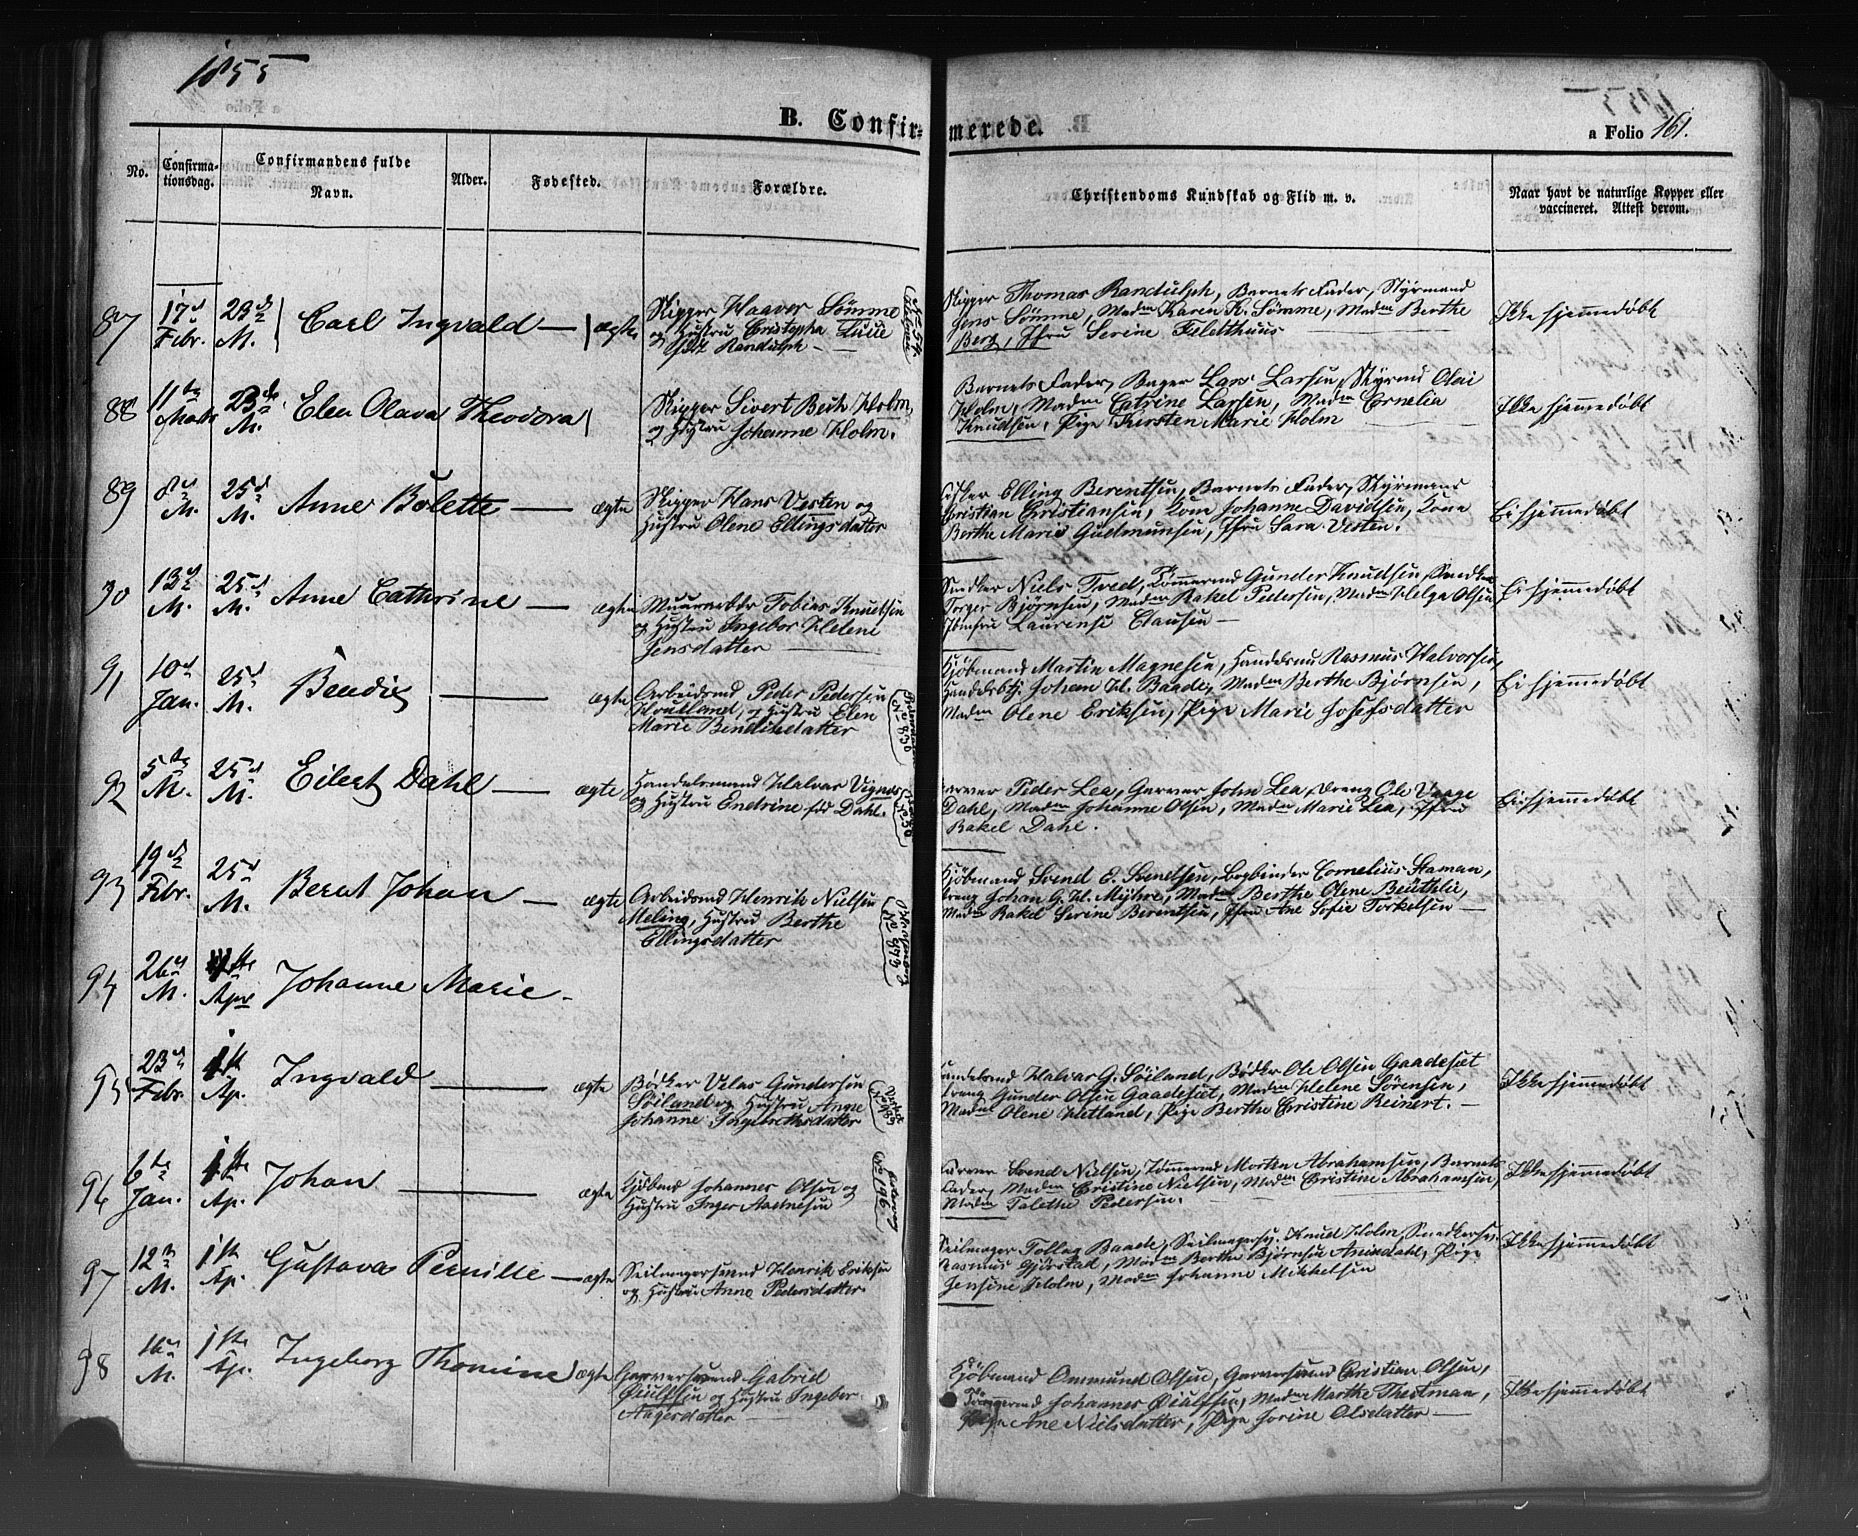 1855
B. Confirmerede.
a Folio 161.
No.
Confirmationsdag.
Confirmandens fulde Navn.
Alder.
Fødested.
Forældre.
Christendoms Kundskab og Flid m. v.
Naar havt de naturlige Kopper eller vaccineret. Attest derom.
87 17d Febr. 23d M. Carl Ingvald — ægte
Skipper Haaver Sømme
og Hustru Cristopha Lucie
født Randulph —
Skipper Thomas Randulph, Barnets Fader, Styrmand
Jens Sømme, Madm Karen K. Sømme, Madm Berthe
Berg, Jfru Serine
Ikke hjemmedøbt
88 11te Marts 23de M. Elen Olava Theodora
Skipper Sivert Bech Holm,
og Hustru Johanne Holm.
Barnets Fader, Bager Lars Larsen, Styrmd Olai
Holm, Madm Catrine Larsen, Madm Cornelia
Knudsen, Pige Kirsten Marie Holm
Ikke hjemmedøbt
89 8de M. 25d M. Anne Bolette — ægte
Skipper Hans Vesten og
Hustru Olene Ellingsdatter
Elling Berentsen, Barnets Fader, Styrmand
Christian Christiansen, Kone Johanne Davidsen, Kone
Berthe Marie Gudmunsen, Jfru Sara Vesten.
Ei hjemmedøbt
90 13d M. 25d M. Anne Cathrine — ægte
Muurmester Tobias Knutsen
og Hustru Ingebor Helene
Jensdatter
Snedker Niels Tved, Tømmermd Gunder Knudsen,
Torger Bjørnsen, Madm Rakel Pedersen, Madm Helga Olsen
Jomfru Laurense Clausen —
Ei hjemmedøbt
91 10d Jan. 25d M. Bendix — ægte
Arbeidsmd Peder Pedersen
og Hustru Elen
Marie Bendiksdatter
Kjøbmand Martin Magnesen, Handelsmd Rasmus Halvorsen,
Johan H. Baade, Madm Berthe Bjørnsen,
Madm Olene Eriksen, Pige Marie Josefsdatter
Ei hjemmedøbt
92 5te M. 25d M. Eilert Dahl — ægte
Handelsmand Halvar Vignes
og Hustru Endrine fød Dahl.
Garver Peder Lea, Garver John Lea, Dreng Ole Vaage
Dahl, Madm Johanne Olsen, Madm Marie Lea, Jfru
Rakel Dahl.
Ei hjemmedøbt
93 19de Febr. 25d M. Bernt Johan — ægte
Arbeidsmd Henrik Nielsen
Meling, Hustru Berthe
Ellingsdatter
Kjøbmand Svend E. Svendsen, Bogbinder Cornelius Staman,
Dreng Johan G. H. Myhre, Madm Berthe Olene
Madm Rakel Serine Berentsen, Jfru Ane Sofie Torkelsen —
94 26d M. 1ste Apr Johanne Marie —
95 23d Febr. 1st Ap. Ingvald — ægte
Bødker Gundersen
Søiland og Hustru Anne
Johanne Ingebretsdatter
Handelsmd Halvar G. Søiland, Bødker Ole Olsen Gaadeset
Dreng Gunder Olsen Gaadeset, Madm Helene Sørensen,
Madm Olene Hetland, Pige Berthe Christine Reinert. —
Ikke hjemmedøbt
96 6te Jan. 1ste Ap. Johan — ægte
Kjøbmd Johannes Olsen og
Hustru Inger Aadnesen
Garver Svend Nielsen, Tømmermd Morten Abrahamsen, Barnets
Fader, Madm Cristine Nielsen, Madm Cristine Abrahamsen,
Madm Talethe Pedersen.
Ikke hjemmedøbt
97 12te M. 1ste Ap. Gustava Pernille — ægte
Seilmagersvend Henrik Eriksen
og Hustru Anne Pedersdatter.
Seilmager Tollag Baade, Seilmagersv. Knud Holm, Snedkersv.
Rasmus Gjørstad, Madm Berthe Bjørnsen Pige
Jensine Holm, Madm Johanne Mikkelsen
Ikke hjemmedøbt
98 16de M. 1ste Ap. Ingeborg Thomine ægte
Garversvend Gabriel
og Hustru Ingebor
Aagesdatter —
Kjøbmand Ommund Olsen, Garversvend Cristian Olsen,
Johannes Madm Marthe Thestman,
Pige Ane Nielsdatter, Pige Jorine Olsdatter —
Ikke hjemmedøbt